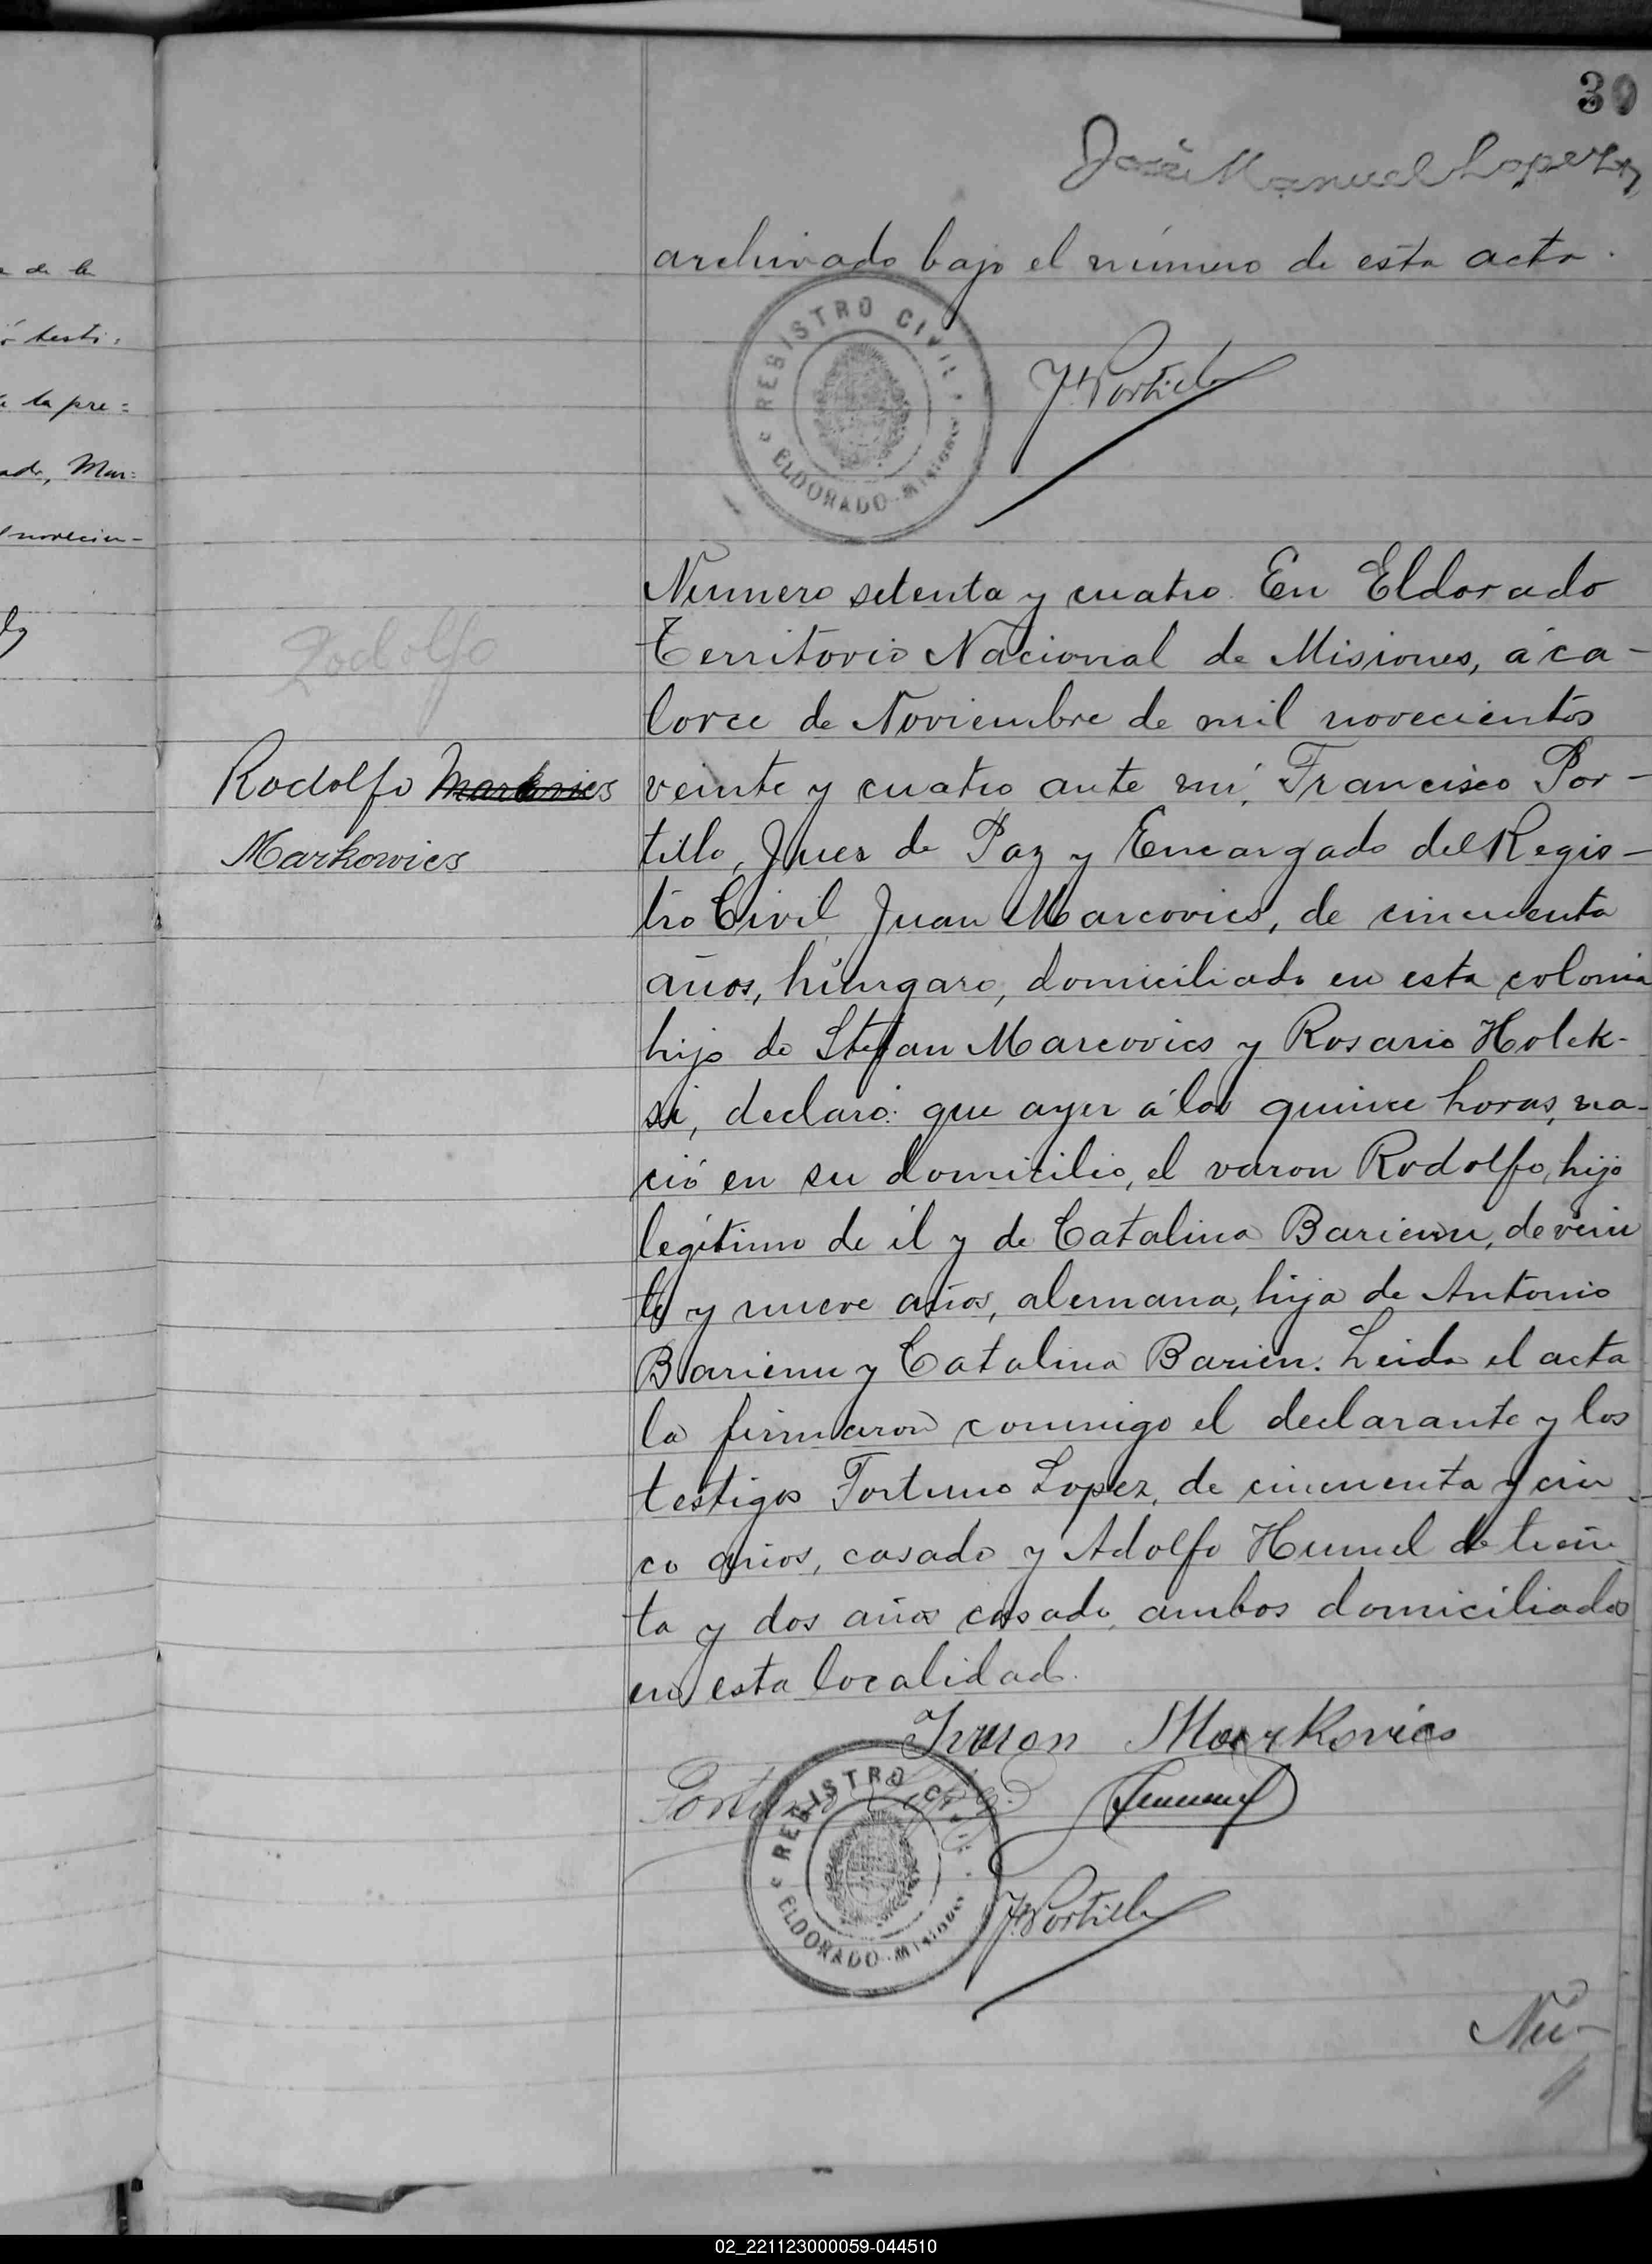 30
José Manuel Lopez
a de la
ó testi:
e la pre=
ado, Mar=
novecien-
archivado bajo el número de esta acta.
REGISTRO CIVIL
ELDORADO - Misiones
F. Portillo
Numero setenta y cuatro. En Eldorado
Rodolfo
Territorio Nacional de Misiones, á ca-
torce de Noviembre de mil novecientos
Rodolfo Markovics
veinte y cuatro ante mi, Francisco Por-
Markowics
tillo, Juez de Paz y Encargado del Regis-
tro Civil, Juan Marcovics, de cincuenta
años, húngaro, domiciliado en esta colonia
hijo de Stefan Marcovics y Rosario Holek-
si, declaró: que ayer á las quince horas, na-
ció en su domicilio, el varon Rodolfo, hijo
legítimo de él y de Catalina Barienn, de vein
te y nueve años, alemana, hija de Antonio
Barienn y Catalina Barien. Leida el acta
la firmaron conmigo el declarante y los
testigos Fortuno Lopez, de cincuenta y cin-
co años, casado y Adolfo Hummel de trein
ta y dos años casado, ambos domiciliados
en esta localidad.
Juan Markovics
Fortuno Lopez
Hummel
REGISTRO CIVIL
ELDORADO - Misiones
F. Portillo
Nú-
02_221123000059-044510